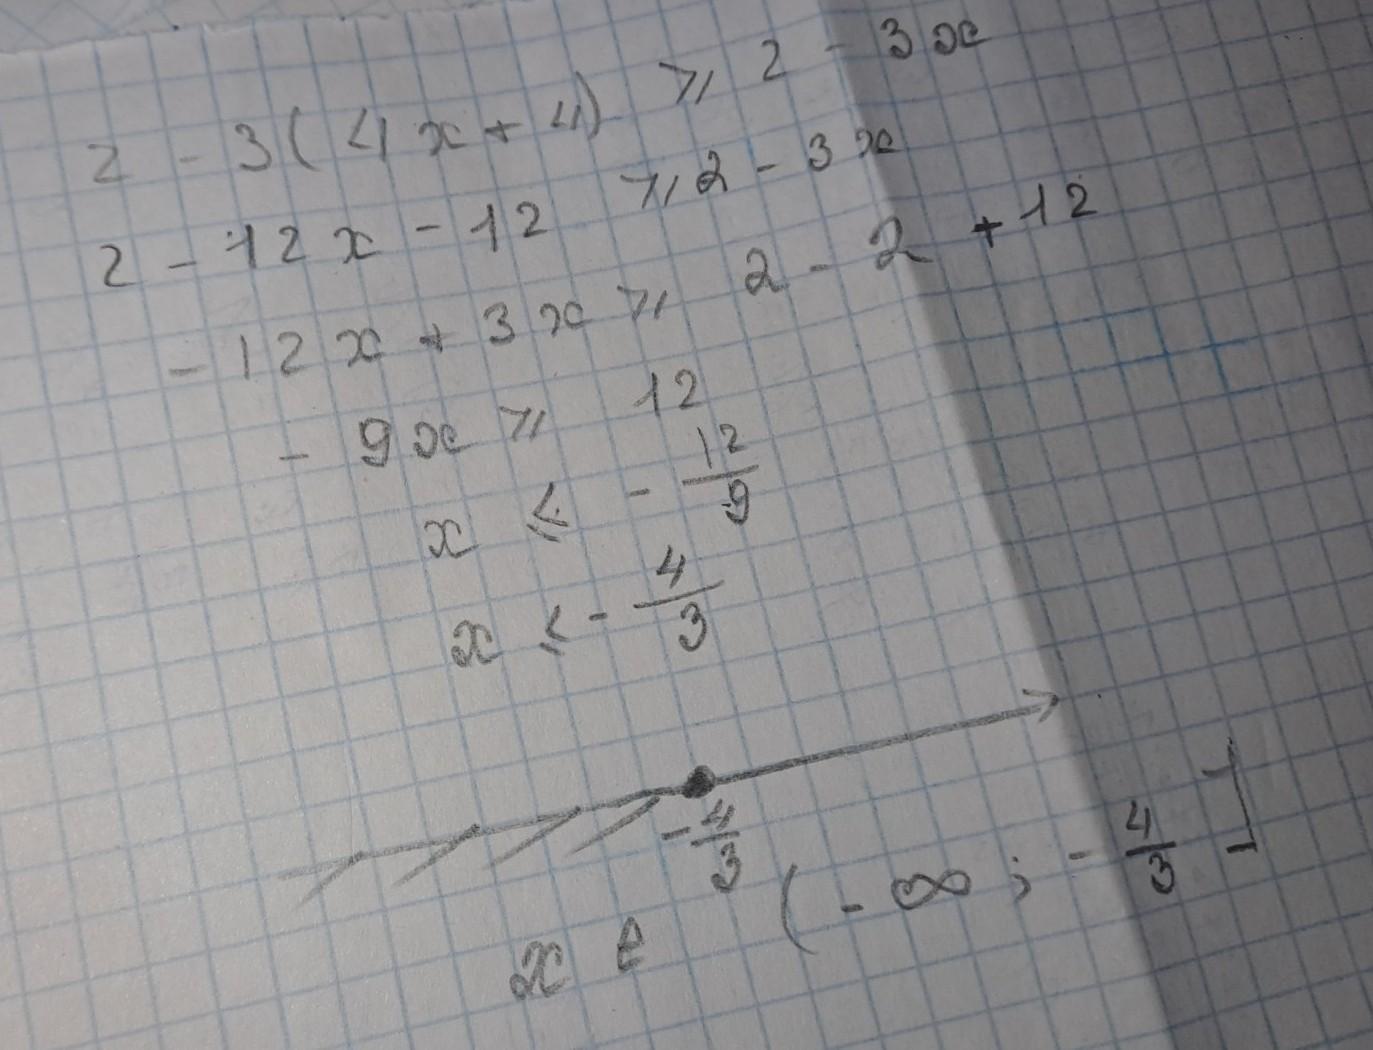 2 - 3(4x + 4) ⩾ 2 - 3x
2 - 12x - 12 ⩾ 2 - 3x
- 12x + 3x ⩾ 2 - 2 + 12
- 9x ⩾ 12
x ⩽ - 12/9
x < - 4/3
- 4/3
x e (- ∞ ; - 4/3]